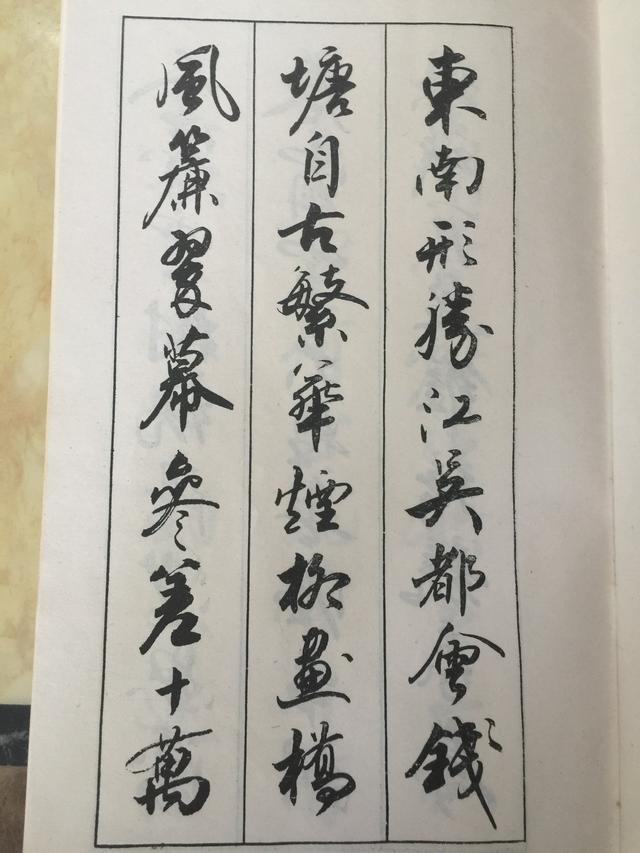 東南形勝江吳都會錢
塘自古繁華煙柳畫橋
風簾翠幕參差十萬